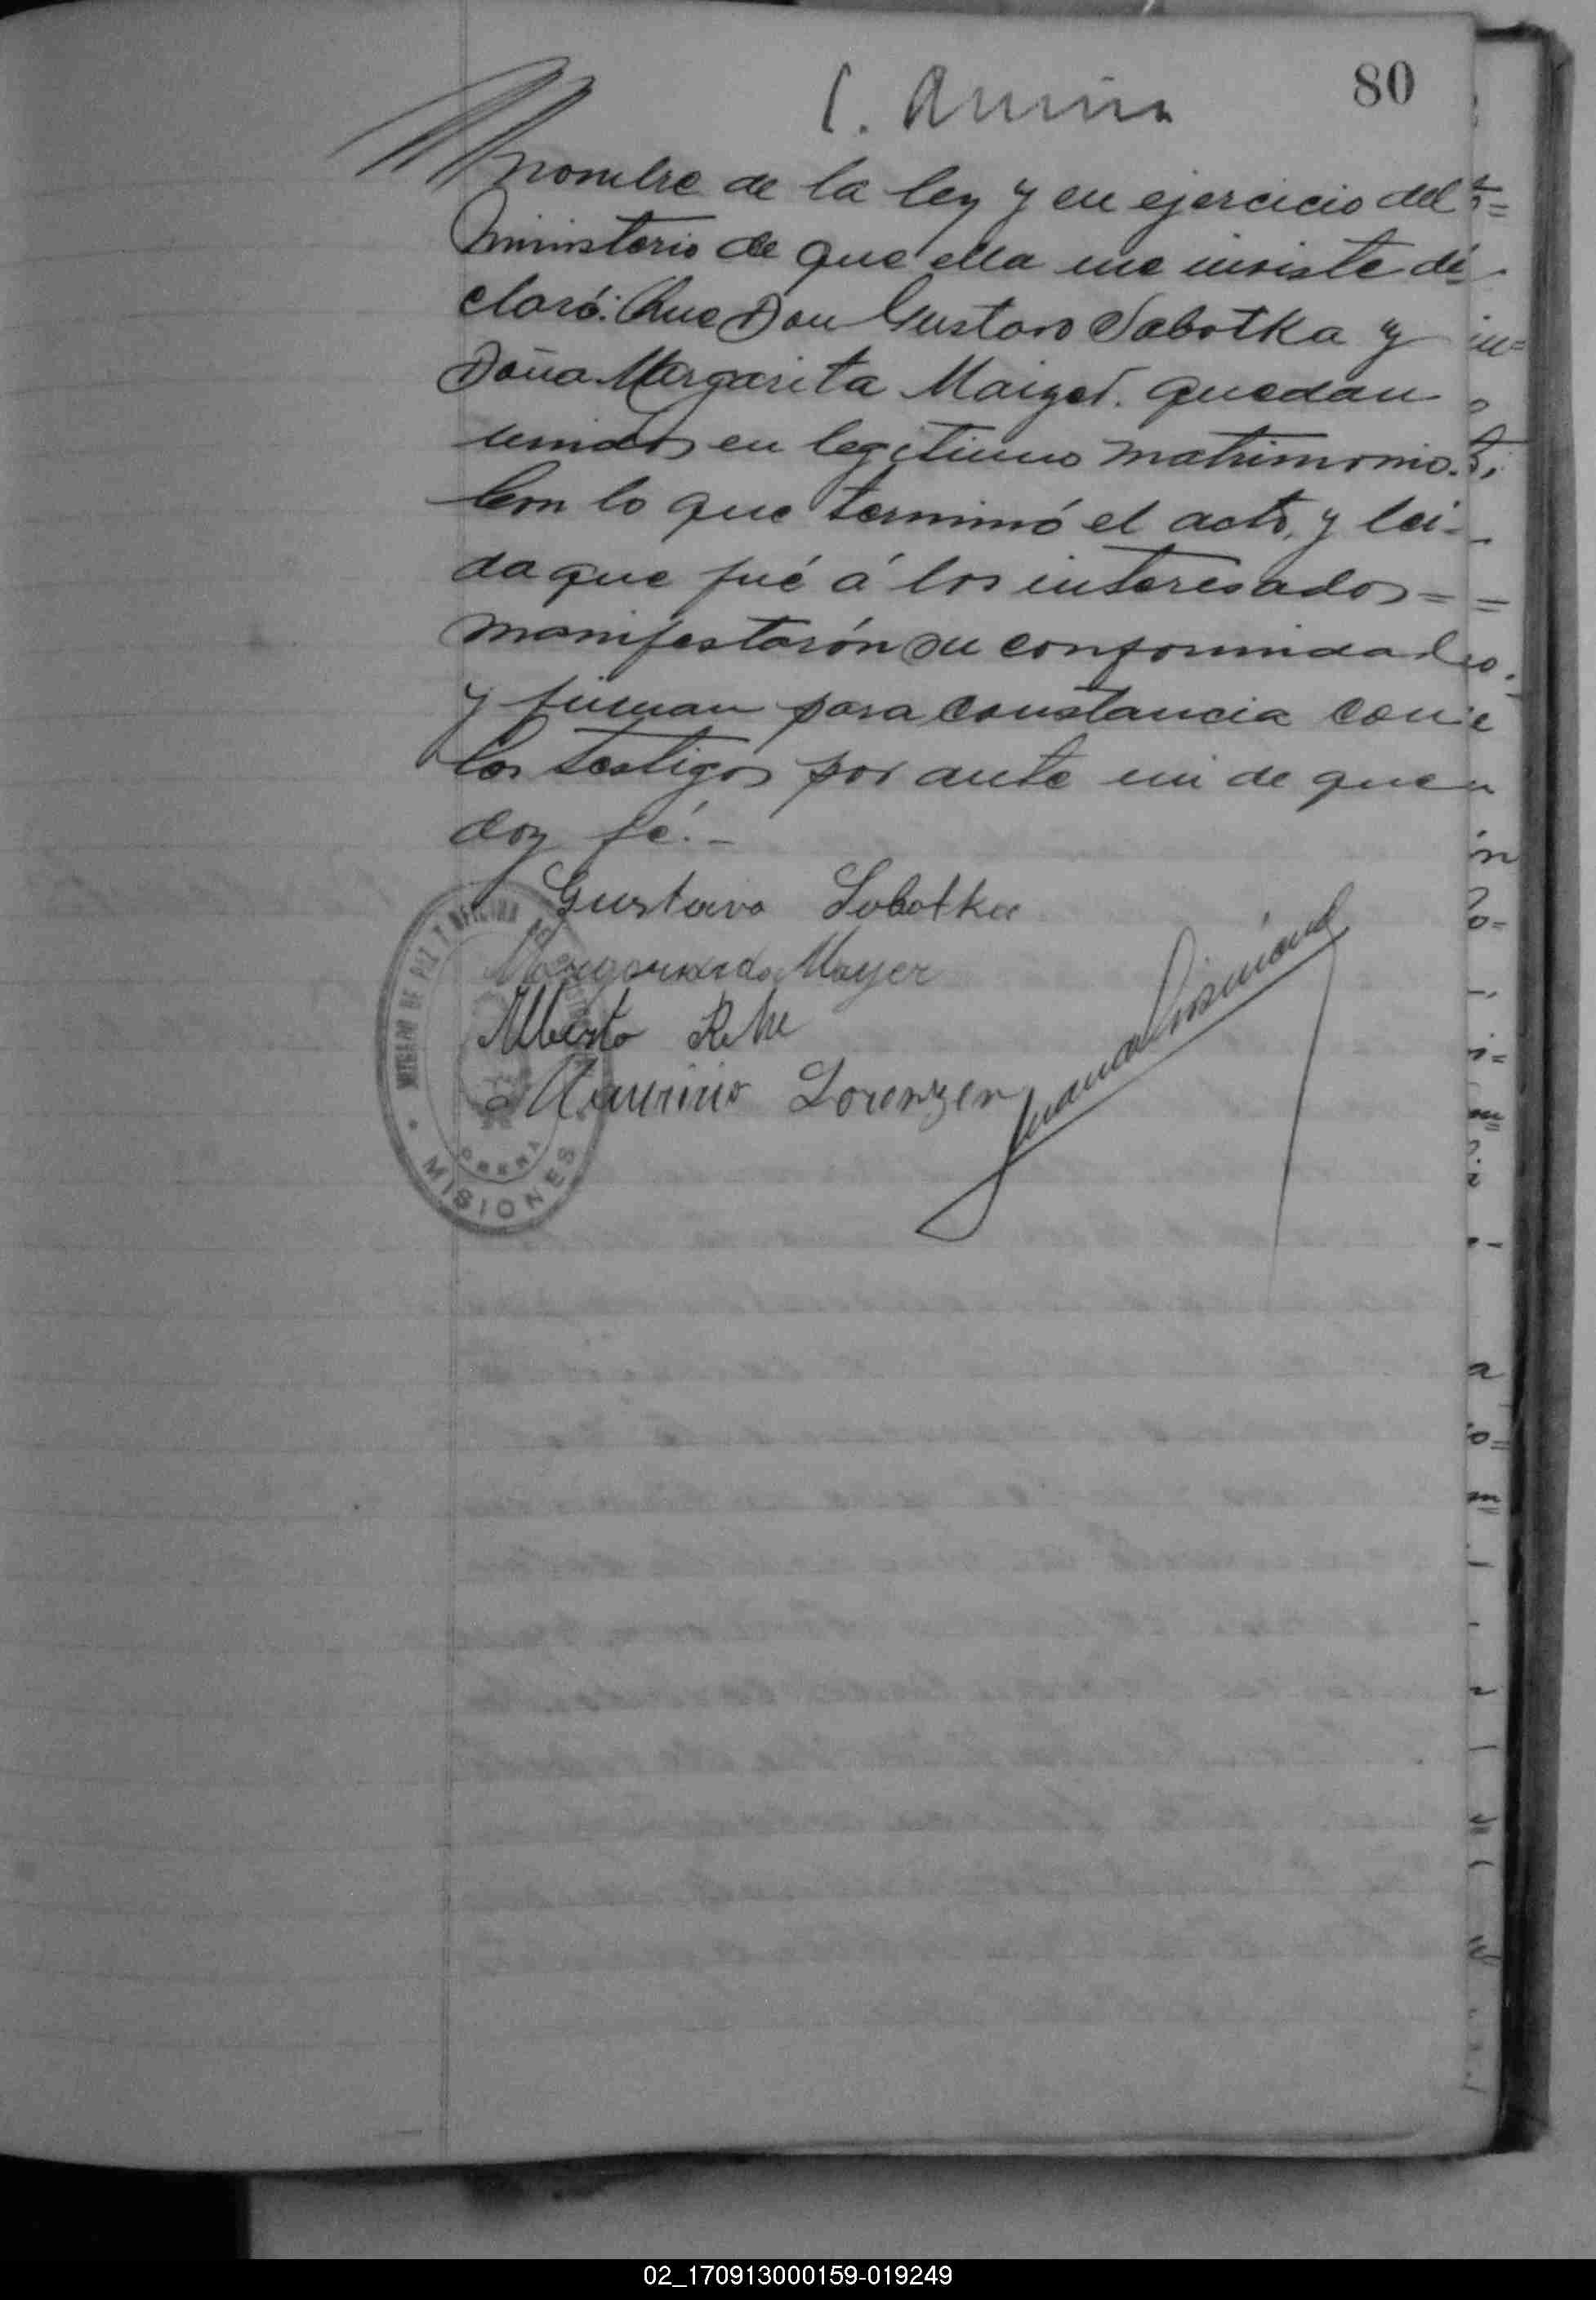 80
nombre de la ley y en ejercicio del
ministerio de que ella me inviste de
claró: Que Don Gustavo Sabotka y
Doña Margarita Maiger. quedan
unidos en legitimo matrimonio.
Con lo que terminó el acto, y lei-
da que fué á los interesados=
manifestarón su conformidad
y firman para constancia con
los testigos por ante mi de que
doy fé.-
Gustavo Sobotka
Mayer
Alberto
Lorenzen
JUZGADO DE PAZ Y OFICINA DEL REGISTRO
OBERA
MISIONES
02_170913000159-019249